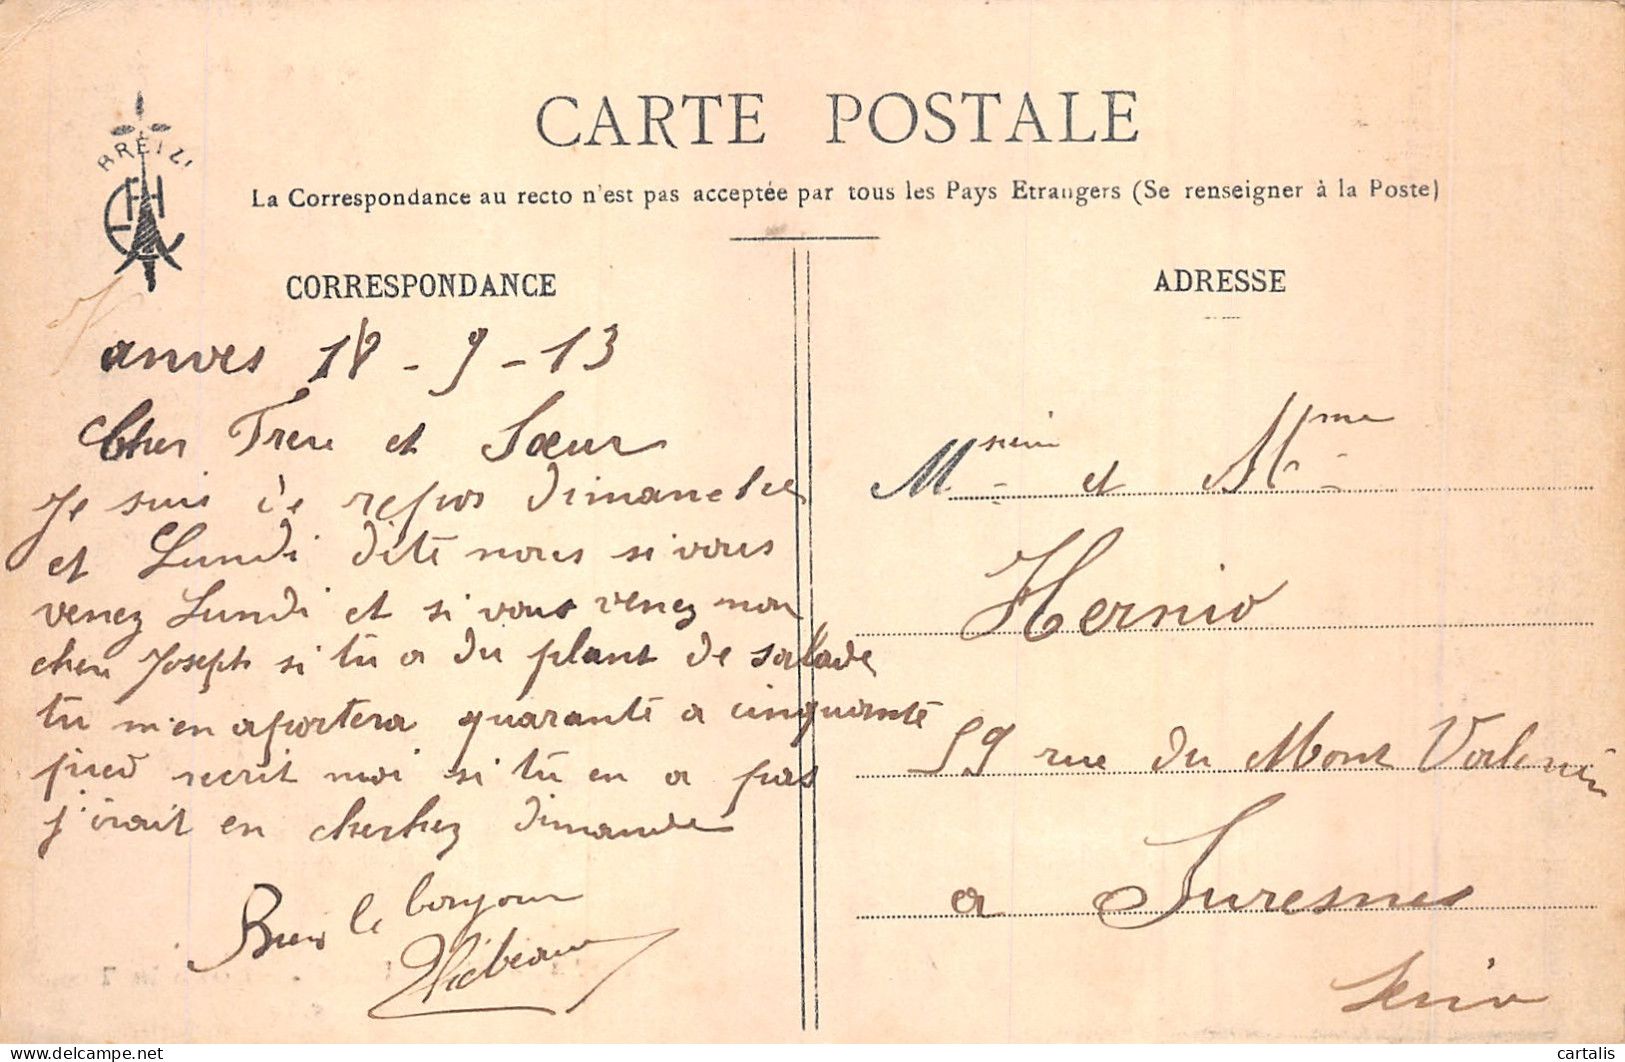 CARTE POSTALE
La Correspondance au recto n'est pas acceptée par tous les Pays Etrangers (Se renseigner à la Poste)
CORRESPONDANCE
anves 18 - 9 - 13
Cher Frere et Sœur
Je suis de repos dimanche
et Lundi dite nous si vous
venez Lundi et si vous venez non
cher Joseph si tu a du plant de salade
tu m'en aportera quarante a cinquante
pied recrit moi si tu en a pas
j'irait en cherchez dimanche
Bien le bonjour
ADRESSE
Msieur et Mme
Hernio
59 rue du Mont Valerien
a Suresnes
Seine
cartalis